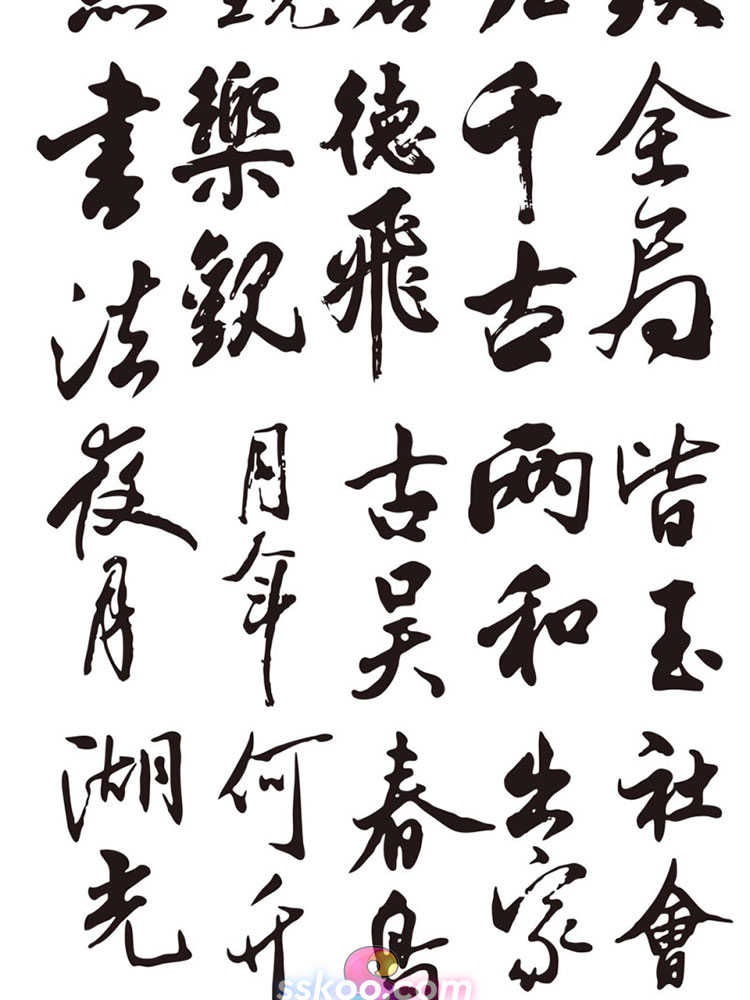 書法
樂觀
德飛
千古
全局
夜月
月年
古吴
两和
皆玉
湖光
何升
春鳥
出家
社會
sskoo.com